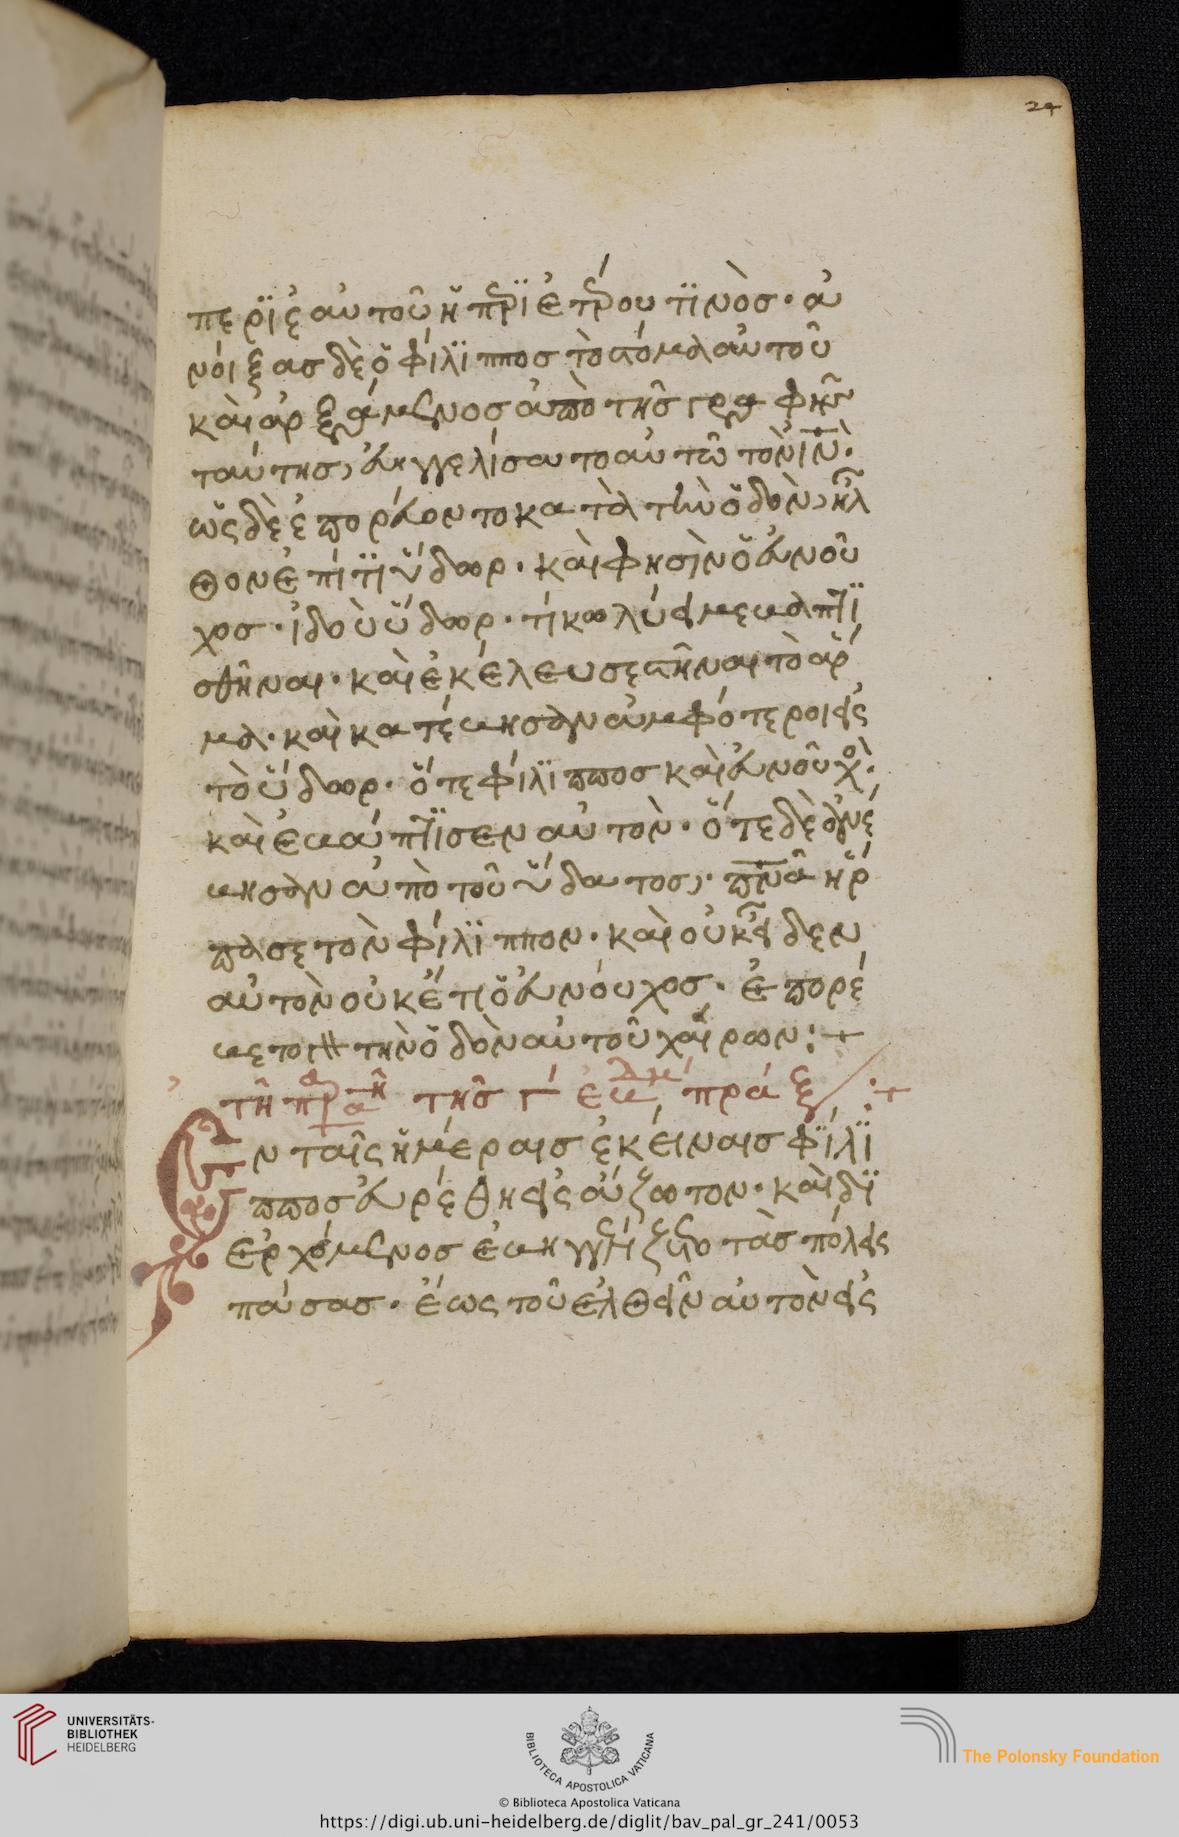 24
περϊ ἑαυτοῦ ἢ πρϊ ἑτρου τϊνὸσ· ἀ
νοίξασ δὲ ὁ φίλϊπποσ τὸ στόμα αὐτοῦ
καὶ ἀρξάμενοσ ἀπὸ τῆσ γραφῆσ
ταύτησ, εὐηγγελίσατο αὐτῶ τὸν ἰν̅·
ὡς δὲ ἐπορεύοντο κατὰ τὴν ὁδὸν, ἦλ
θον ἐπί τϊ ὕδωρ· καὶ φησὶν ὁ εὐνοῦ
χοσ· ἰδοὺ ὕδωρ· τί κωλύει με βαπτϊ
σθῆναι· καὶ ἐκέλευσε στῆναι τὸ ἅρ
μα· καὶ κατέβησαν ἀμφότεροι εἰς
τὸ ὕδωρ· ὅτε φίλϊπποσ καὶ εὐνοῦχο·
καὶ ἐβάπτϊσεν αὐτὸν· ὅτε δὲ ἀνέ
βησαν ἀπὸ τοῦ ὕδατοσ,· πν̅α ἥρ
πασε τὸν φίλϊππον· καὶ οὐκ εἶδεν
αὐτὸν οὐκέτι ὁ εὐνούχοσ· ἐπορέ
βετο γὰρ τὴν ὁδὸν αὐτοῦ χαίρων:+
τῆ πρα τῆσ γ ἑβδμ πράξ:+
Ἐν ταῖς ἡμέραισ ἐκείναισ φϊλϊ
πποσ εὑρέθη εἰς ἄζωτον· καὶ δϊ
ερχόμενοσ ἐβηγγελίζετο τὰσ πόλεις
πάσασ· ἕως τοῦ ἐλθεῖν αὐτὸν εἰς
UNIVERSITÄTS-
BIBLIOTHEK
HEIDELBERG
BIBLIOTECA APOSTOLICA VATICANA
The Polonsky Foundation
© Biblioteca Apostolica Vaticana
https://digi.ub.uni-heidelberg.de/diglit/bav_pal_gr_241/0053